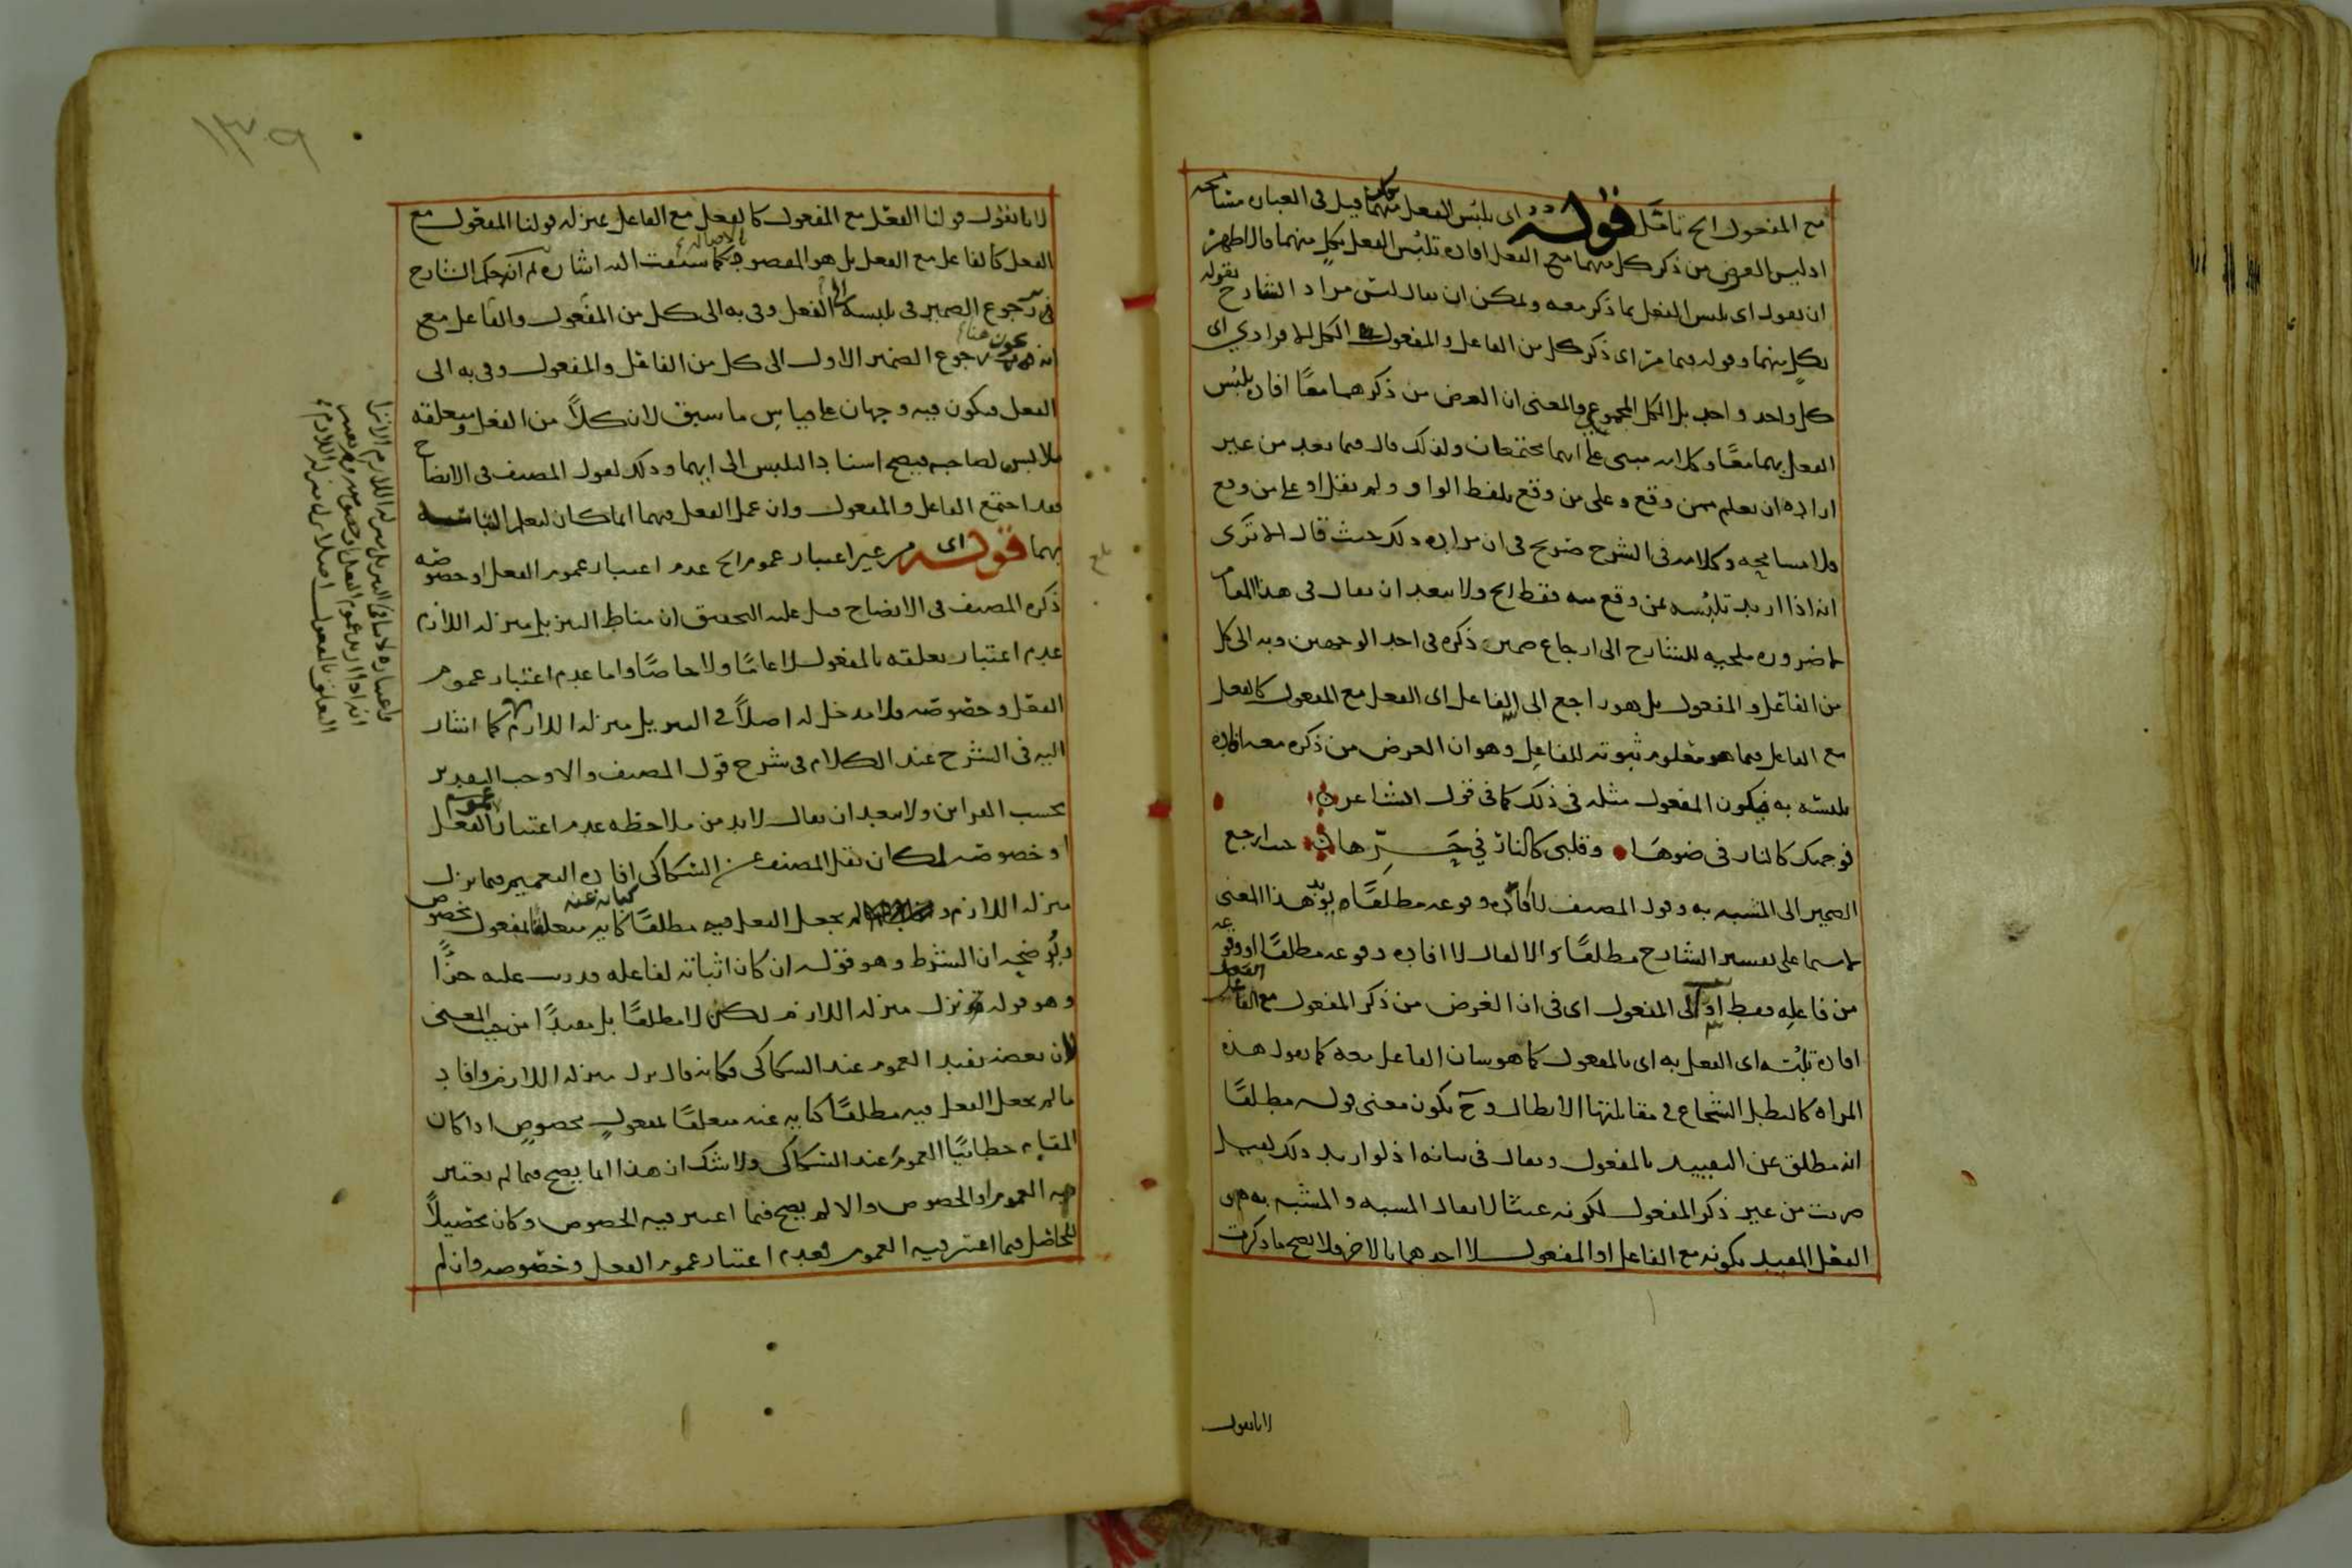 مع المفعول الخ تأمل قوله اي تلبس الفعل بكل منهما قيل في العبارة مسامحة
اذ ليس الغرض من ذكر كل منهما مع الفعل افادة تلبس الفعل بكل منهما فالاظهر
ان يقول اي تلبس الفعل بما ذكر معه ويمكن ان يقال ليس مراد الشارح بقوله
بكل منهما وقوله فيما مر اي ذكر كل من الفاعل والمفعول الكل الافرادي اي
كل واحد واحد بل الكل المجموعي والمعنى ان الغرض من ذكرهما معًا افادة تلبس
الفعل بهما معًا وكلامه مبني على انهما مجتمعان ولذلك قال فيما بعد من غير
ارادة ان يعلم ممن وقع وعلى من وقع بلفظ الواو ولم يقل او على من وقع
فلا مسامحة وكلامه في الشرح صريح في ان مراده ذلك حيث قال الا ترى
انه اذا اريد تلبسه بمن وقع منه فقط الخ ولا يبعد ان يقال في هذا المقام
لا ضرورة ملجئة للشارح الى ارجاع ضمير ذكره في احد الوجهين وبه الى كل
من الفاعل والمفعول بل هو راجع الى الفاعل اي الفعل مع المفعول كالفعل
مع الفاعل فيما هو معلوم ثبوته للفاعل وهو ان الغرض من ذكره معه افادة
تلبسه به فيكون المفعول مثله في ذلك كما في قول الشاعر
فوجهك كالنار في ضوءها وقلبي كالنار في حرها حيث ارجع
الضمير الى المشبه به وقول المصنف لا افادة وقوعه مطلقًا يؤيد هذا المعنى
لا سيما على تفسير الشارح مطلقًا والا لقال لا افادة وقوعه مطلقًا او وقوعه
من فاعله فقط او الى المفعول اي في ان الغرض من ذكر المفعول مع الفعل
افادة تلبسه اي الفعل به اي بالمفعول كما هو شان الفاعل معه كما يقول هذه
المراة كالبطل الشجاع في مقابلتها الابطال وح يكون معنى قوله مطلقًا
انه مطلق عن التقييد بالمفعول ويقال في بيانه اذ لو اريد ذلك لقيل
ضربت من غير ذكر المفعول لكونه عبثا لا يقال المشبه والمشبه به هو
الفعل المقيد بكونه مع الفاعل او المفعول لا احدهما بالاخر فلا يصح ما ذكرت
لانا نقول
١٣٩
لانا نقول قولنا الفعل مع المفعول كالفعل مع الفاعل بمنزلة قولنا المفعول مع
الفعل كالفاعل مع الفعل بل هو المقصود كما سبقت اليه اشارة ثم انه حكم الشارح
في رجوع الضمير في تلبسه الى الفعل وفي به الى كل من المفعول والفاعل مع
انه يجوز هنا رجوع الضمير الاول الى كل من الفاعل والمفعول وفي به الى
الفعل فيكون فيه وجهان على قياس ما سبق لان كلاً من الفعل ومتعلقه
ملابس لصاحبه فيصح اسناد التلبس الى ايهما وذلك لقول المصنف في الايضاح
فقد اجتمع الفاعل والمفعول وان عمل الفعل فيهما انما كان ليعلم التباسه
بهما قوله اي من غير اعتبار عموم الخ عدم اعتبار عموم الفعل او خصوصه
ذكره المصنف في الايضاح قيل عليه التحقيق ان مناط التنزيل منزلة اللازم
عدم اعتبار تعلقه بالمفعول لا عامًا ولا خاصًا واما عدم اعتبار عموم
الفعل وخصوصه فلا مدخل له اصلاً في التنزيل منزلة اللازم كما اشار
اليه في الشرح عند الكلام في شرح قول المصنف والا وجب التقدير
بحسب القراين ولا يبعد ان يقال لا بد من ملاحظة عدم اعتبار عموم الفعل
او خصوصه لمكان نقل المصنف عن السكاكي افادة التعميم فيما نزل
منزلة اللازم ولم يجعل الفعل فيه مطلقًا كناية عنه متعلقا بمفعول مخصوص
وتوضيحه ان الشرط وهو قوله ان كان اثباته لفاعله قد رتب عليه جزآ
وهو قوله نزل منزلة اللازم لكن لا مطلقًا بل مقيدًا من حيث المعنى
لان بعضه يفيد العموم عند السكاكي فكانه قال نزل منزلة اللازم وافاد
ما لم يجعل الفعل فيه مطلقًا كناية عنه متعلقًا بمفعول مخصوص اذا كان
المقام خطابيًا العموم عند السكاكي ولا شك ان هذا انما يصح فيما لم يعتبر
فيه العموم او الخصوص والا لم يصح فيما اعتبر فيه الخصوص وكان تحصيلاً
للحاصل فيما اعتبر فيه العموم فعدم اعتبار عموم الفعل وخصوصه وان لم